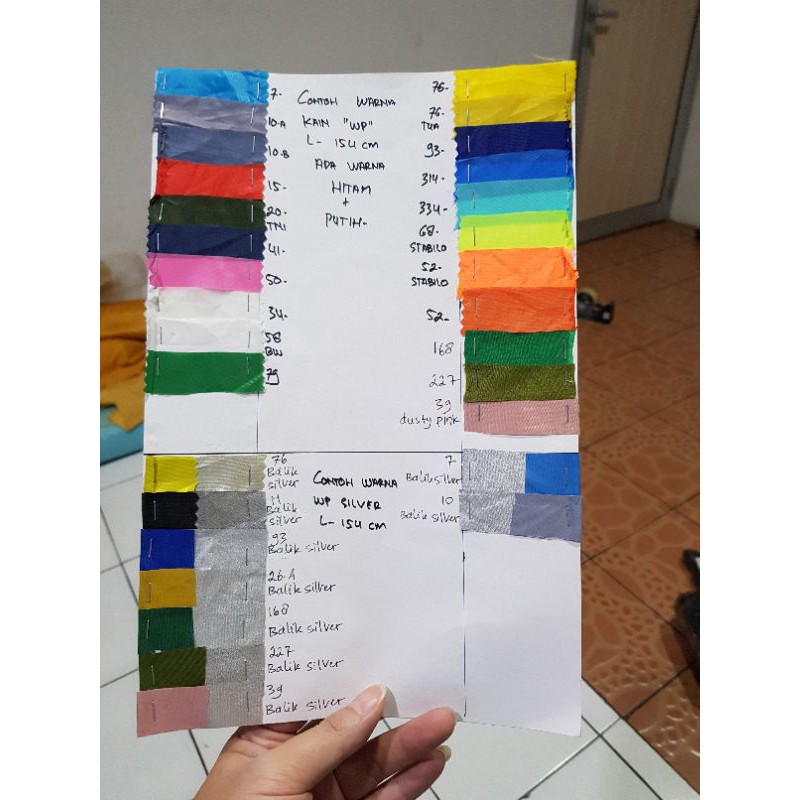 7-
10-A
10.B
15-
20-
TNI
41-
50-
34-
58
BW
79
CONTOH WARNA
KAIN "WP"
L- 154 cm
ADA WARNA
HITAM
+
PUTIH-
76-
76-
TUA
93-
314-
334-
68-
STABILO
52-
STABILO
52-
168
227
39
dusty pink
76
Balik
silver
H
Balik
silver
93
Balik silver
26.A
Balik silver
168
Balik silver
227
Balik silver
39
Balik silver
CONTOH WARNA
WP SILVER
L- 154 cm
7-
Balik silver
10
Balik silver